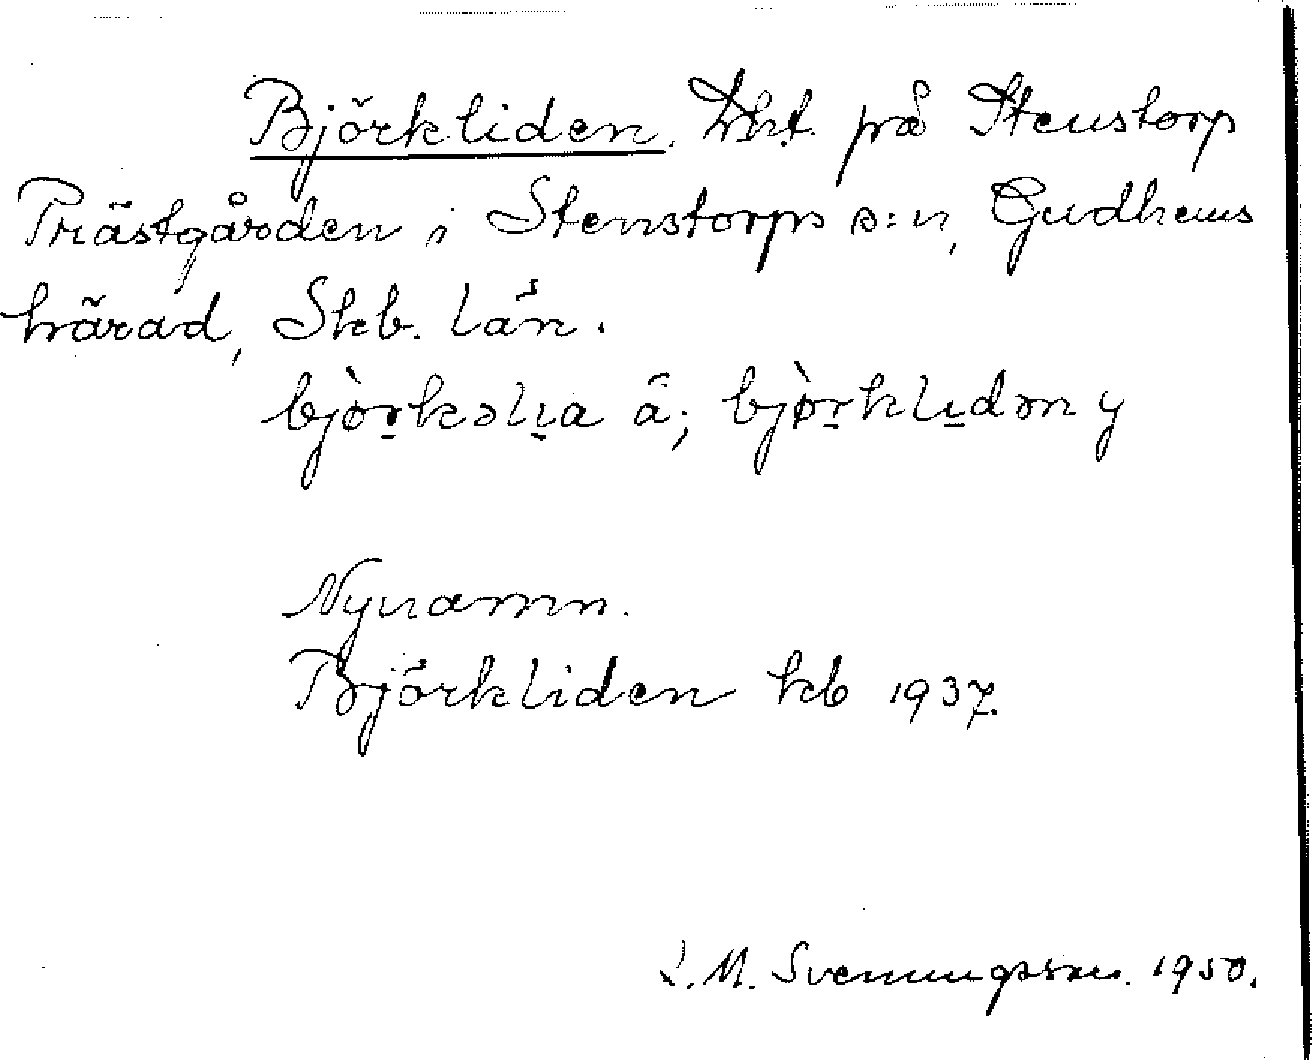 Björkliden. Lht. på Stenstorp
Prästgården i Stenstorps s:n, Gudhems
härad, Skb. län.
bjòrkəlia ä; bjòrklidən y
Nynamn.
Björkliden kb 1937.
L. M. Svenungsson. 1950.